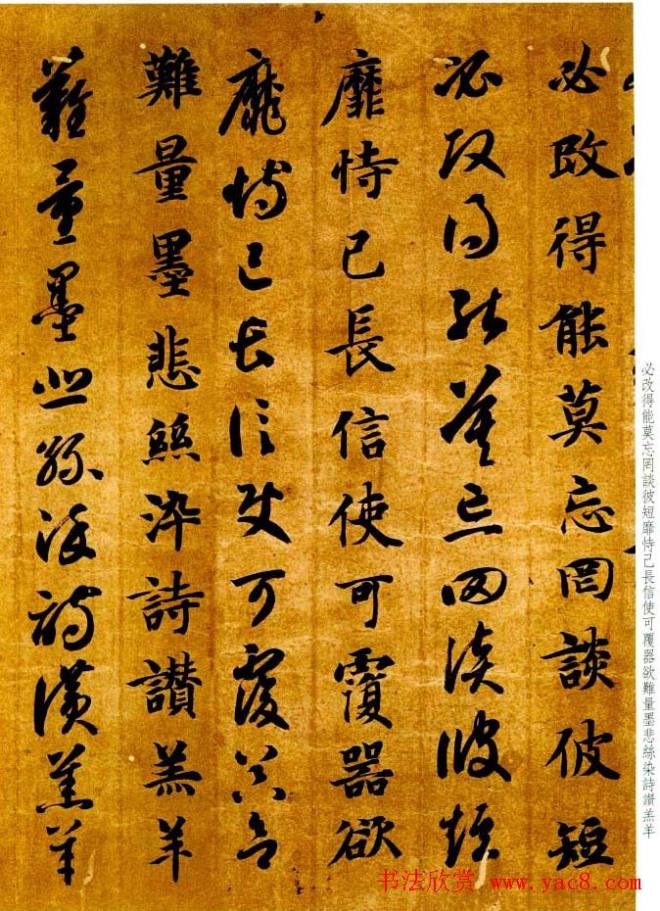 必改得能莫忘罔談彼短
必改得能莫忘罔談彼短
靡恃己長信使可覆器欲
靡恃己長信使可覆器欲
難量墨悲絲染詩讃羔羊
難量墨悲絲染詩讃羔羊
必改得能莫忘罔談彼短靡恃己長信使可覆器欲難量墨悲絲染詩讃羔羊
书法欣赏 www.yac8.com